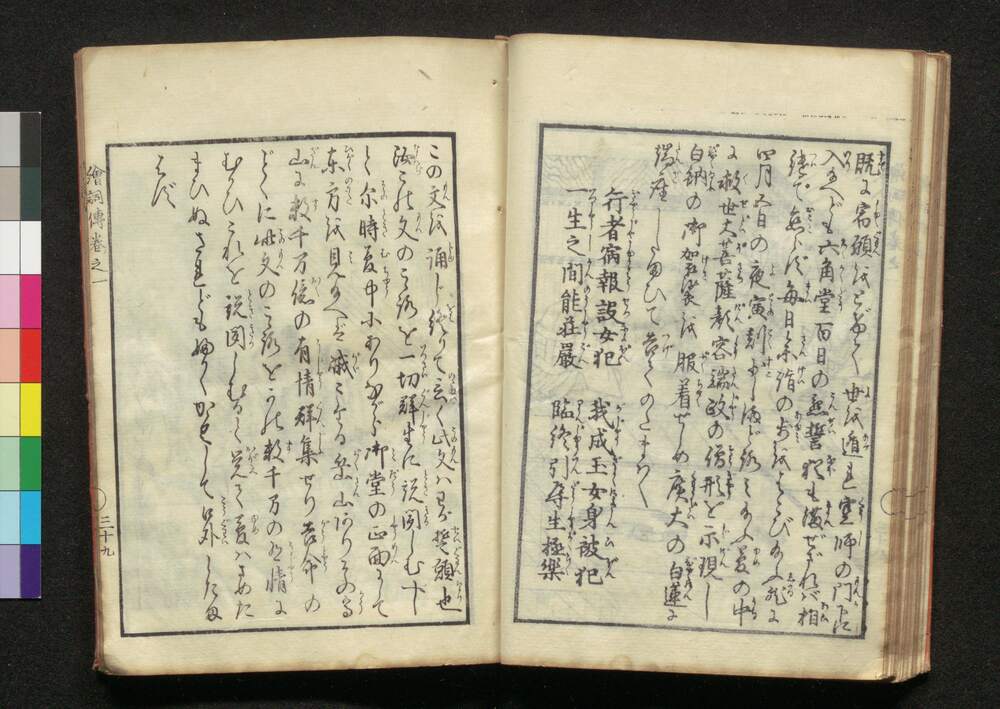 既に宿願をとげて世を遁れ空師の門下に
入給へども六角堂百日の懇誓猶も満ぜざれば相
続て怠らず毎日参詣の歩をはこびたまふ然に
四月五日の夜寅刻にまどろみ給ふ夢の中
に救世大菩薩顔容端政の僧形を示現し
白衲の御袈裟を服着せしめ広大の白蓮に
端座したまひて告てのたまはく
行者宿報設女犯 我成玉女身被犯
一生之間能荘厳 臨終引導生極楽
この文を誦し給りて云く此文はわが誓願也
汝この文のこゝろを一切群生に説聞しむべし
と尓時夢中にありながら御堂の正面にして
東方を見給へば峨々たる岳山ありその高
山に数千万億の有情群集せり告命の
ごとくに此文のこゝろをかの数千万の有情に
むかひこれを説聞しむるとおぼえて夢はさめた
まひぬされども婦かくかくして口外したま
はず
繪詞傳巻之一
三十九